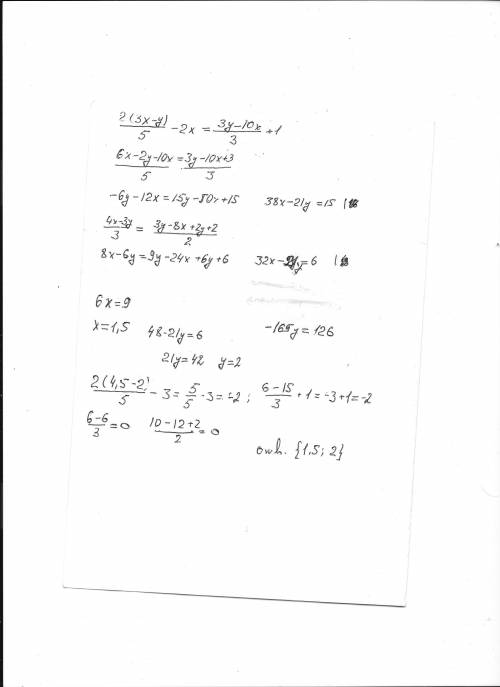 2(3x-y)/5 - 2x = 3y-10x/3 + 1
6x-2y-10x/5 = 3y-10x+3/3
-6y-12x=15y-50x+15 38x-21y=15
4x-3y/3 = 3y-8x+2y+2/2
8x-6y=9y-24x+6y+6 32x-21y=6
6x=9
x=1,5 48-21y=6 -165y=126
21y=42 y=2
2(4,5-2)/5 - 3 = 5/5 - 3 = -2 ; 6-15/3 + 1 = -3+1=-2
6-6/3 = 0 10-12+2/2 = 0
отв. {1,5; 2}